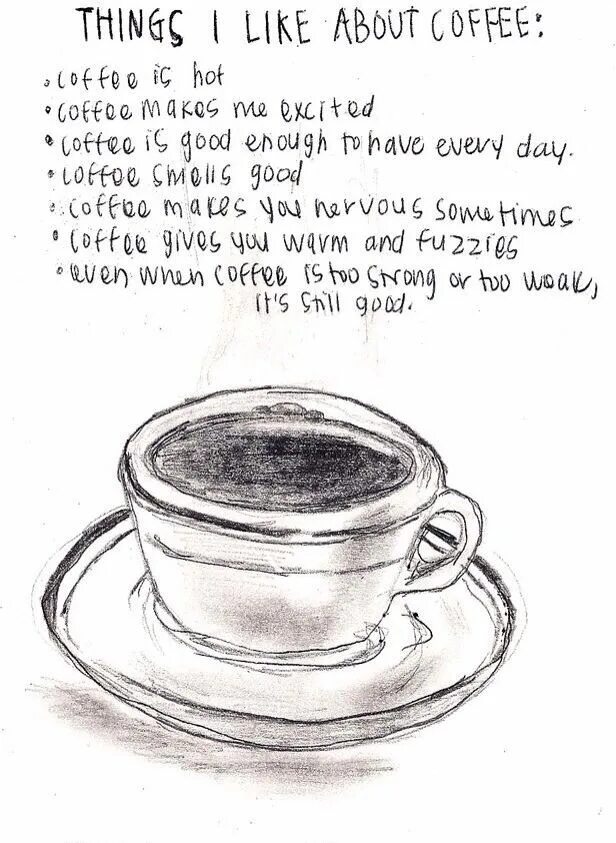 THINGS I LIKE ABOUT COFFEE:
• coffee is hot
• coffee makes me excited
• coffee is good enough to have every day.
• coffee smells good
• coffee makes you nervous sometimes
• coffee gives you warm and fuzzies
• even when coffee is too strong or too weak,
it's still good.